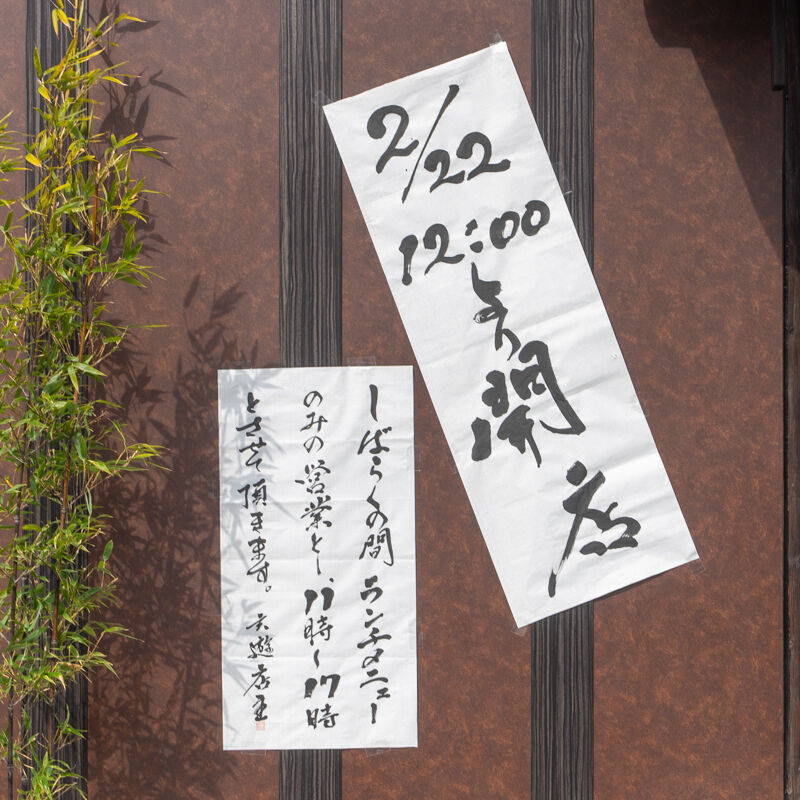 2/22
12:00
より
開
店
しばらくの間 ランチメニュー
のみの営業とし、11時~17時
とさせて頂きます。 六遊 店主